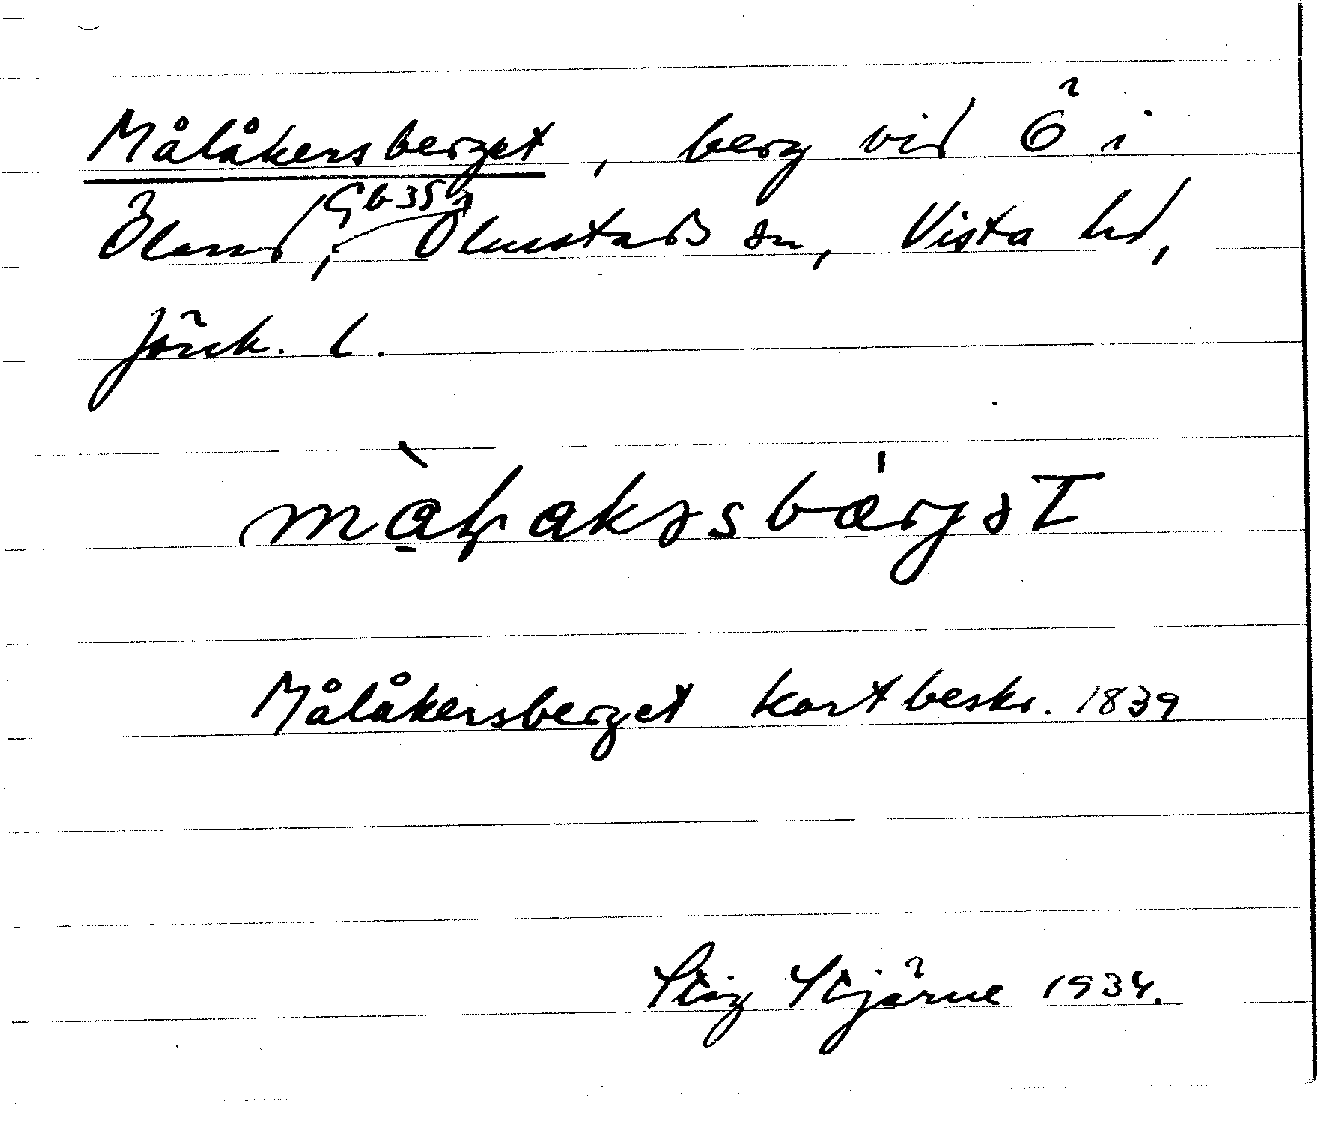 Målåkersberget, berg vid Ö i
Öland, Gb 35, Ölmstads sn, Vista hd,
Jönk. l.
Målåkersberget kartbeskr. 1839
Stig Stjärne 1934.